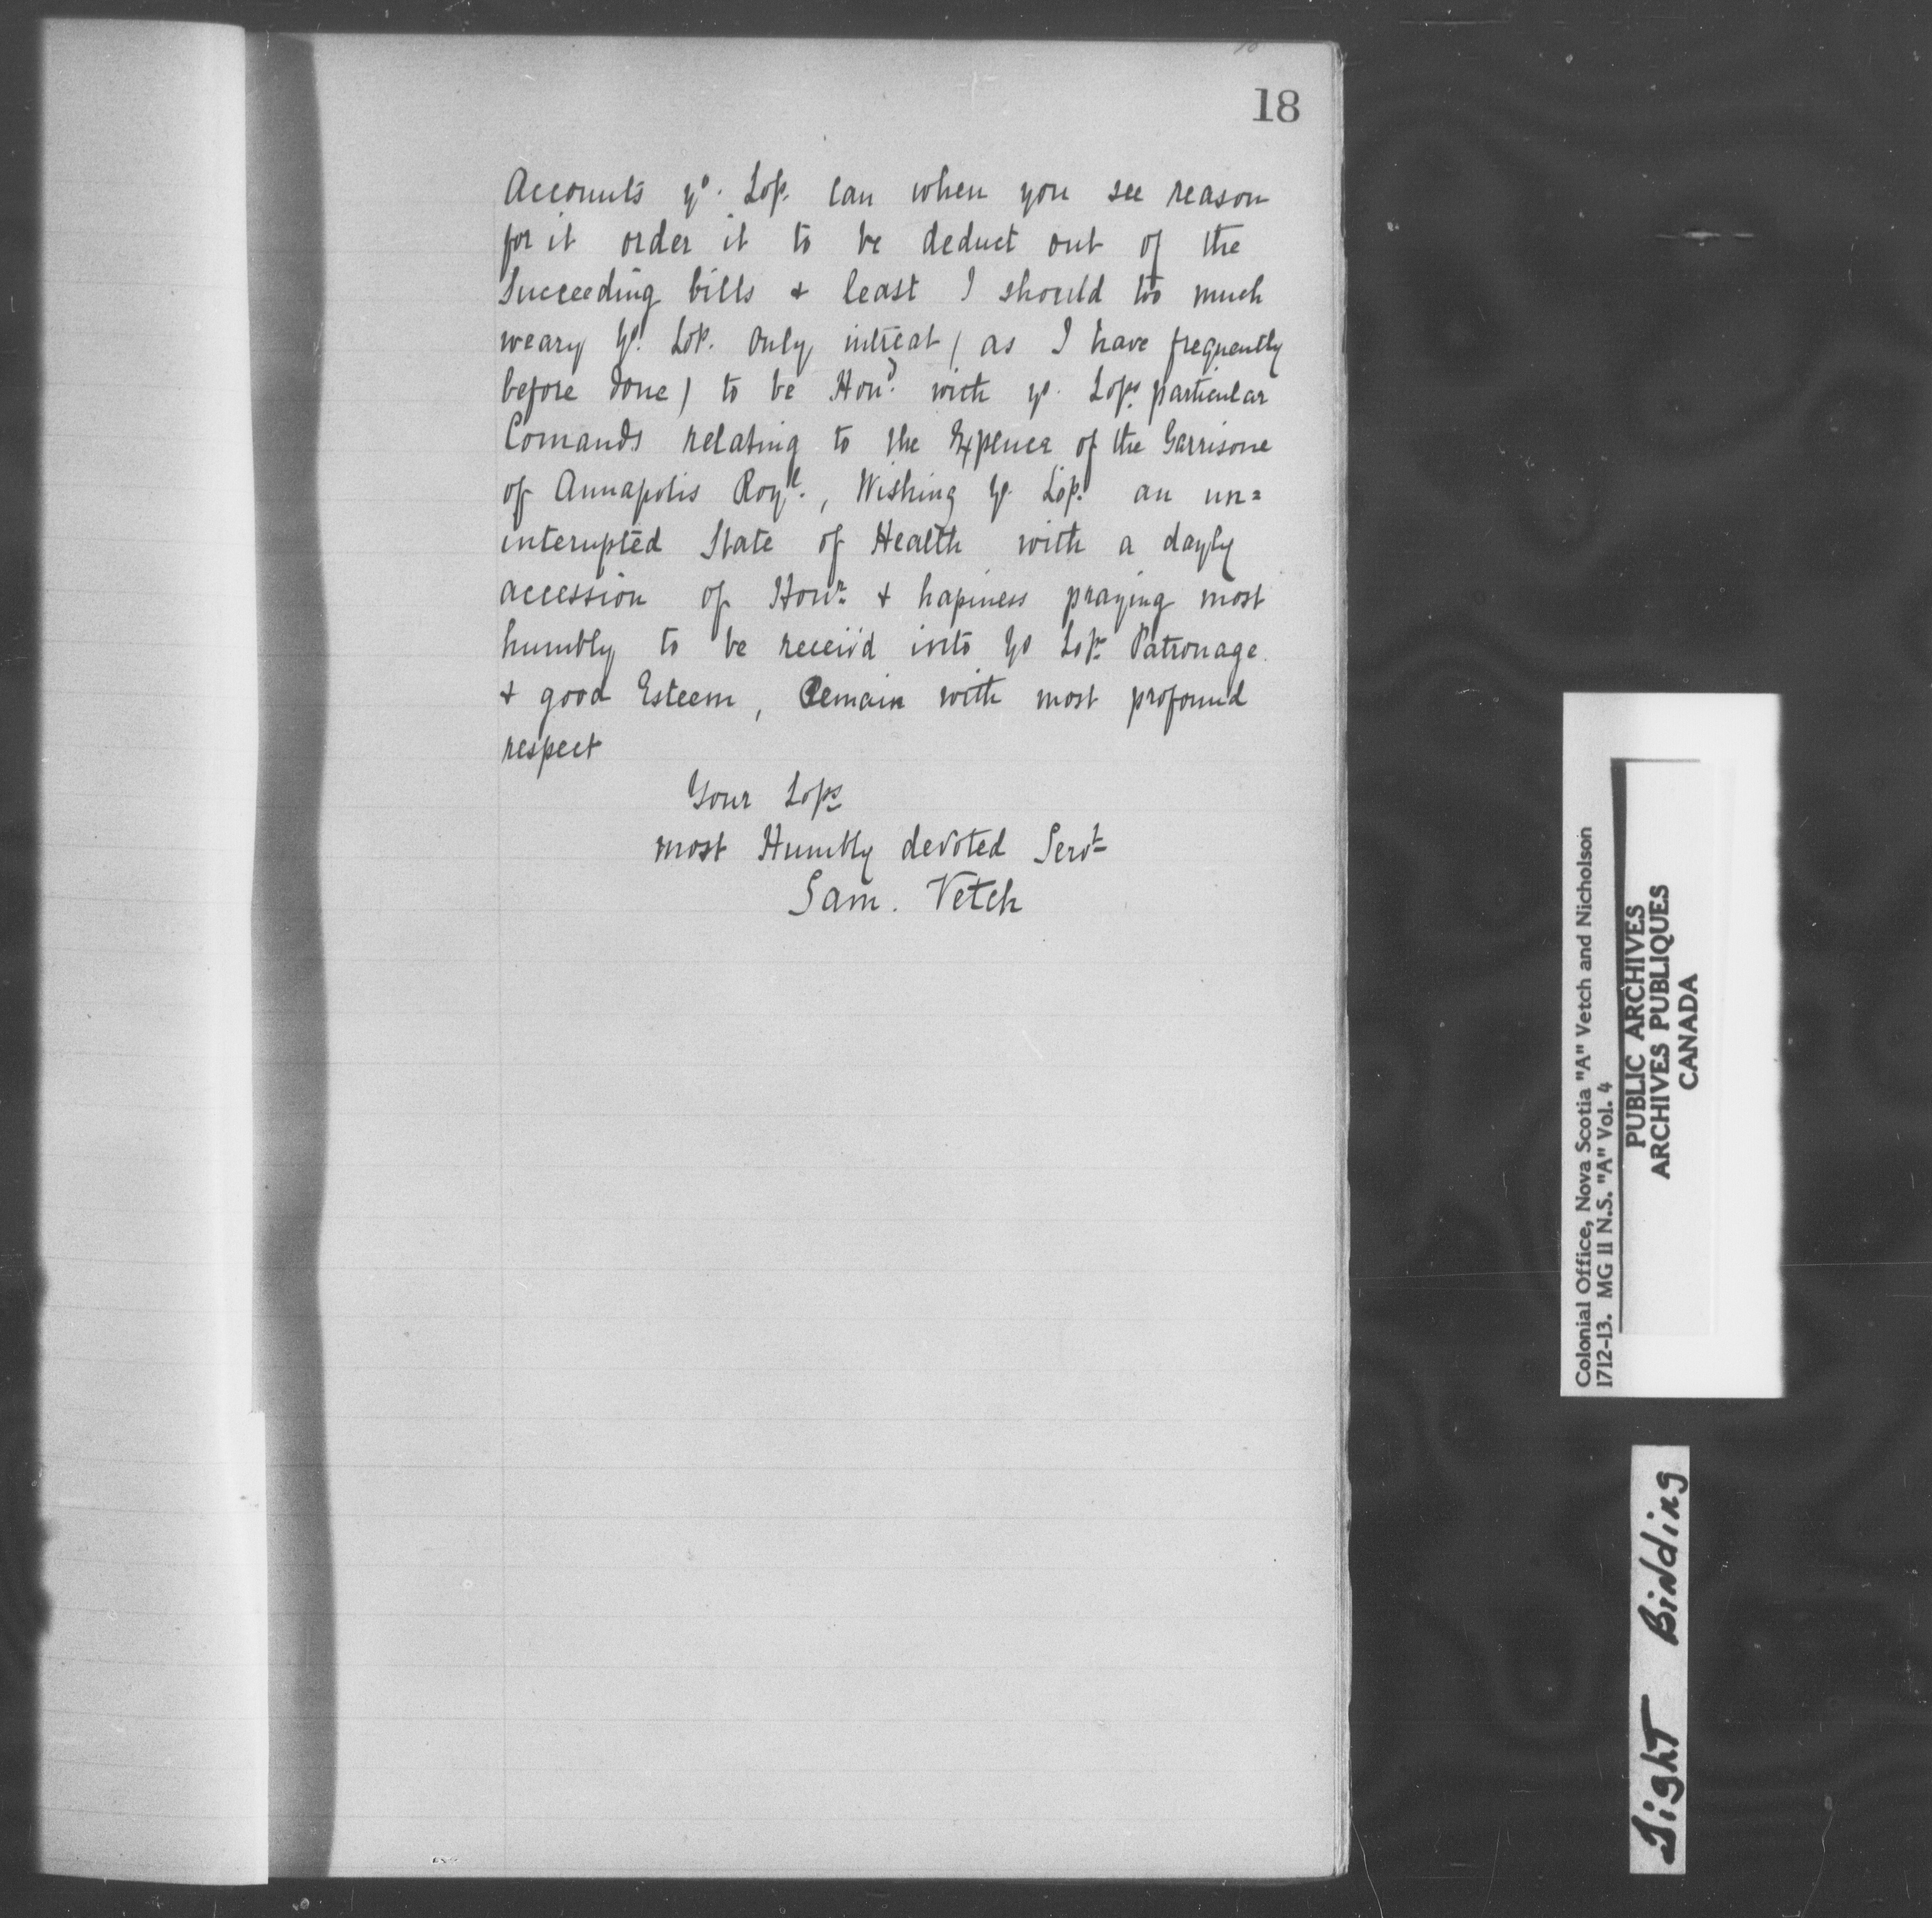 18
Accounts yo. Lop. can when you see reason
for it order it to be deduct out of the
Succeeding bills & least I should too much
weary yo. Lop. only intreat ( as I have frequently
before done ) to be Hond. with yo. Lops. particular
Comands relating to the Expence of the Garrisone
of Annapolis Royl., Wishing yo. Lop. an un=
interupted State of Health with a dayly
accession of Honr. & hapiness praying most
humbly to be receiv'd into yo Lops. Patronage.
& good Esteem, Remain with most profound
respect
Your Lops
most Humbly devoted Servt
Sam. Vetch
Colonial Office, Nova Scotia "A" Vetch and Nicholson
1712-13. MG 11 N.S. "A" Vol. 4
PUBLIC ARCHIVES
ARCHIVES PUBLIQUES
CANADA
Tight Binding